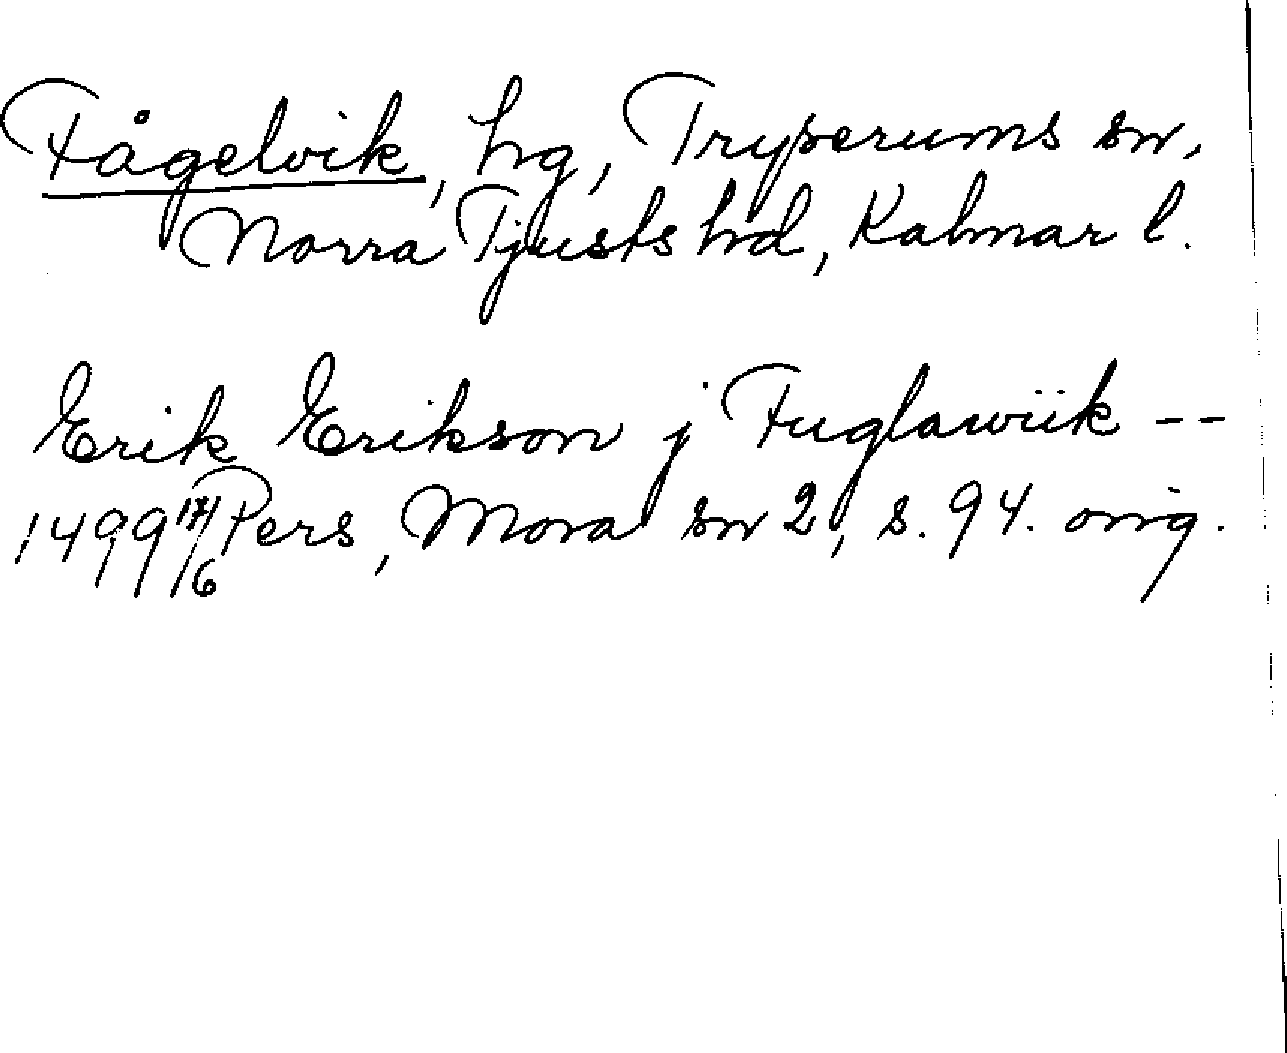 Fågelvik, hg, Tryserums sn,
Norra Tjusts hd, Kalmar l.
Erik Erikson j Fuglawiik --
1499 17/6 Pers, Mora sn 2, s. 94. orig.